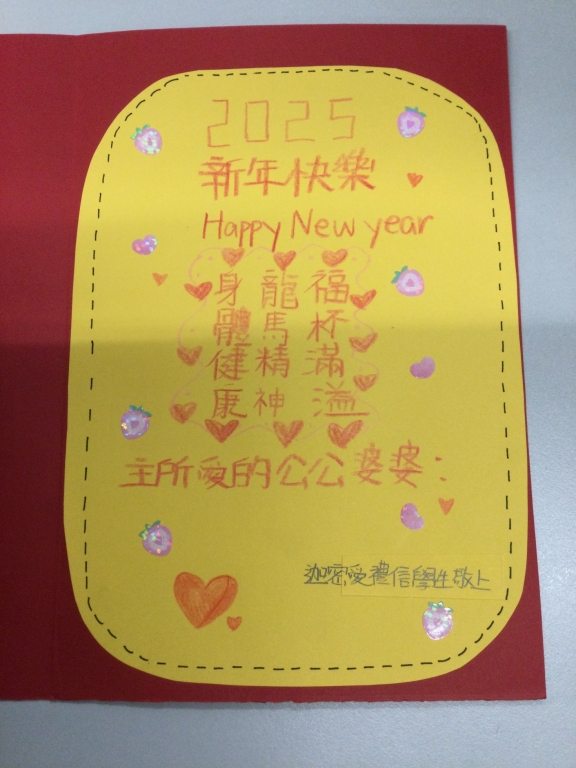 2025
新年快樂
Happy New year
身體健康
龍馬精神
福杯滿溢
主所愛的公公婆婆：
迦密愛禮信學生敬上